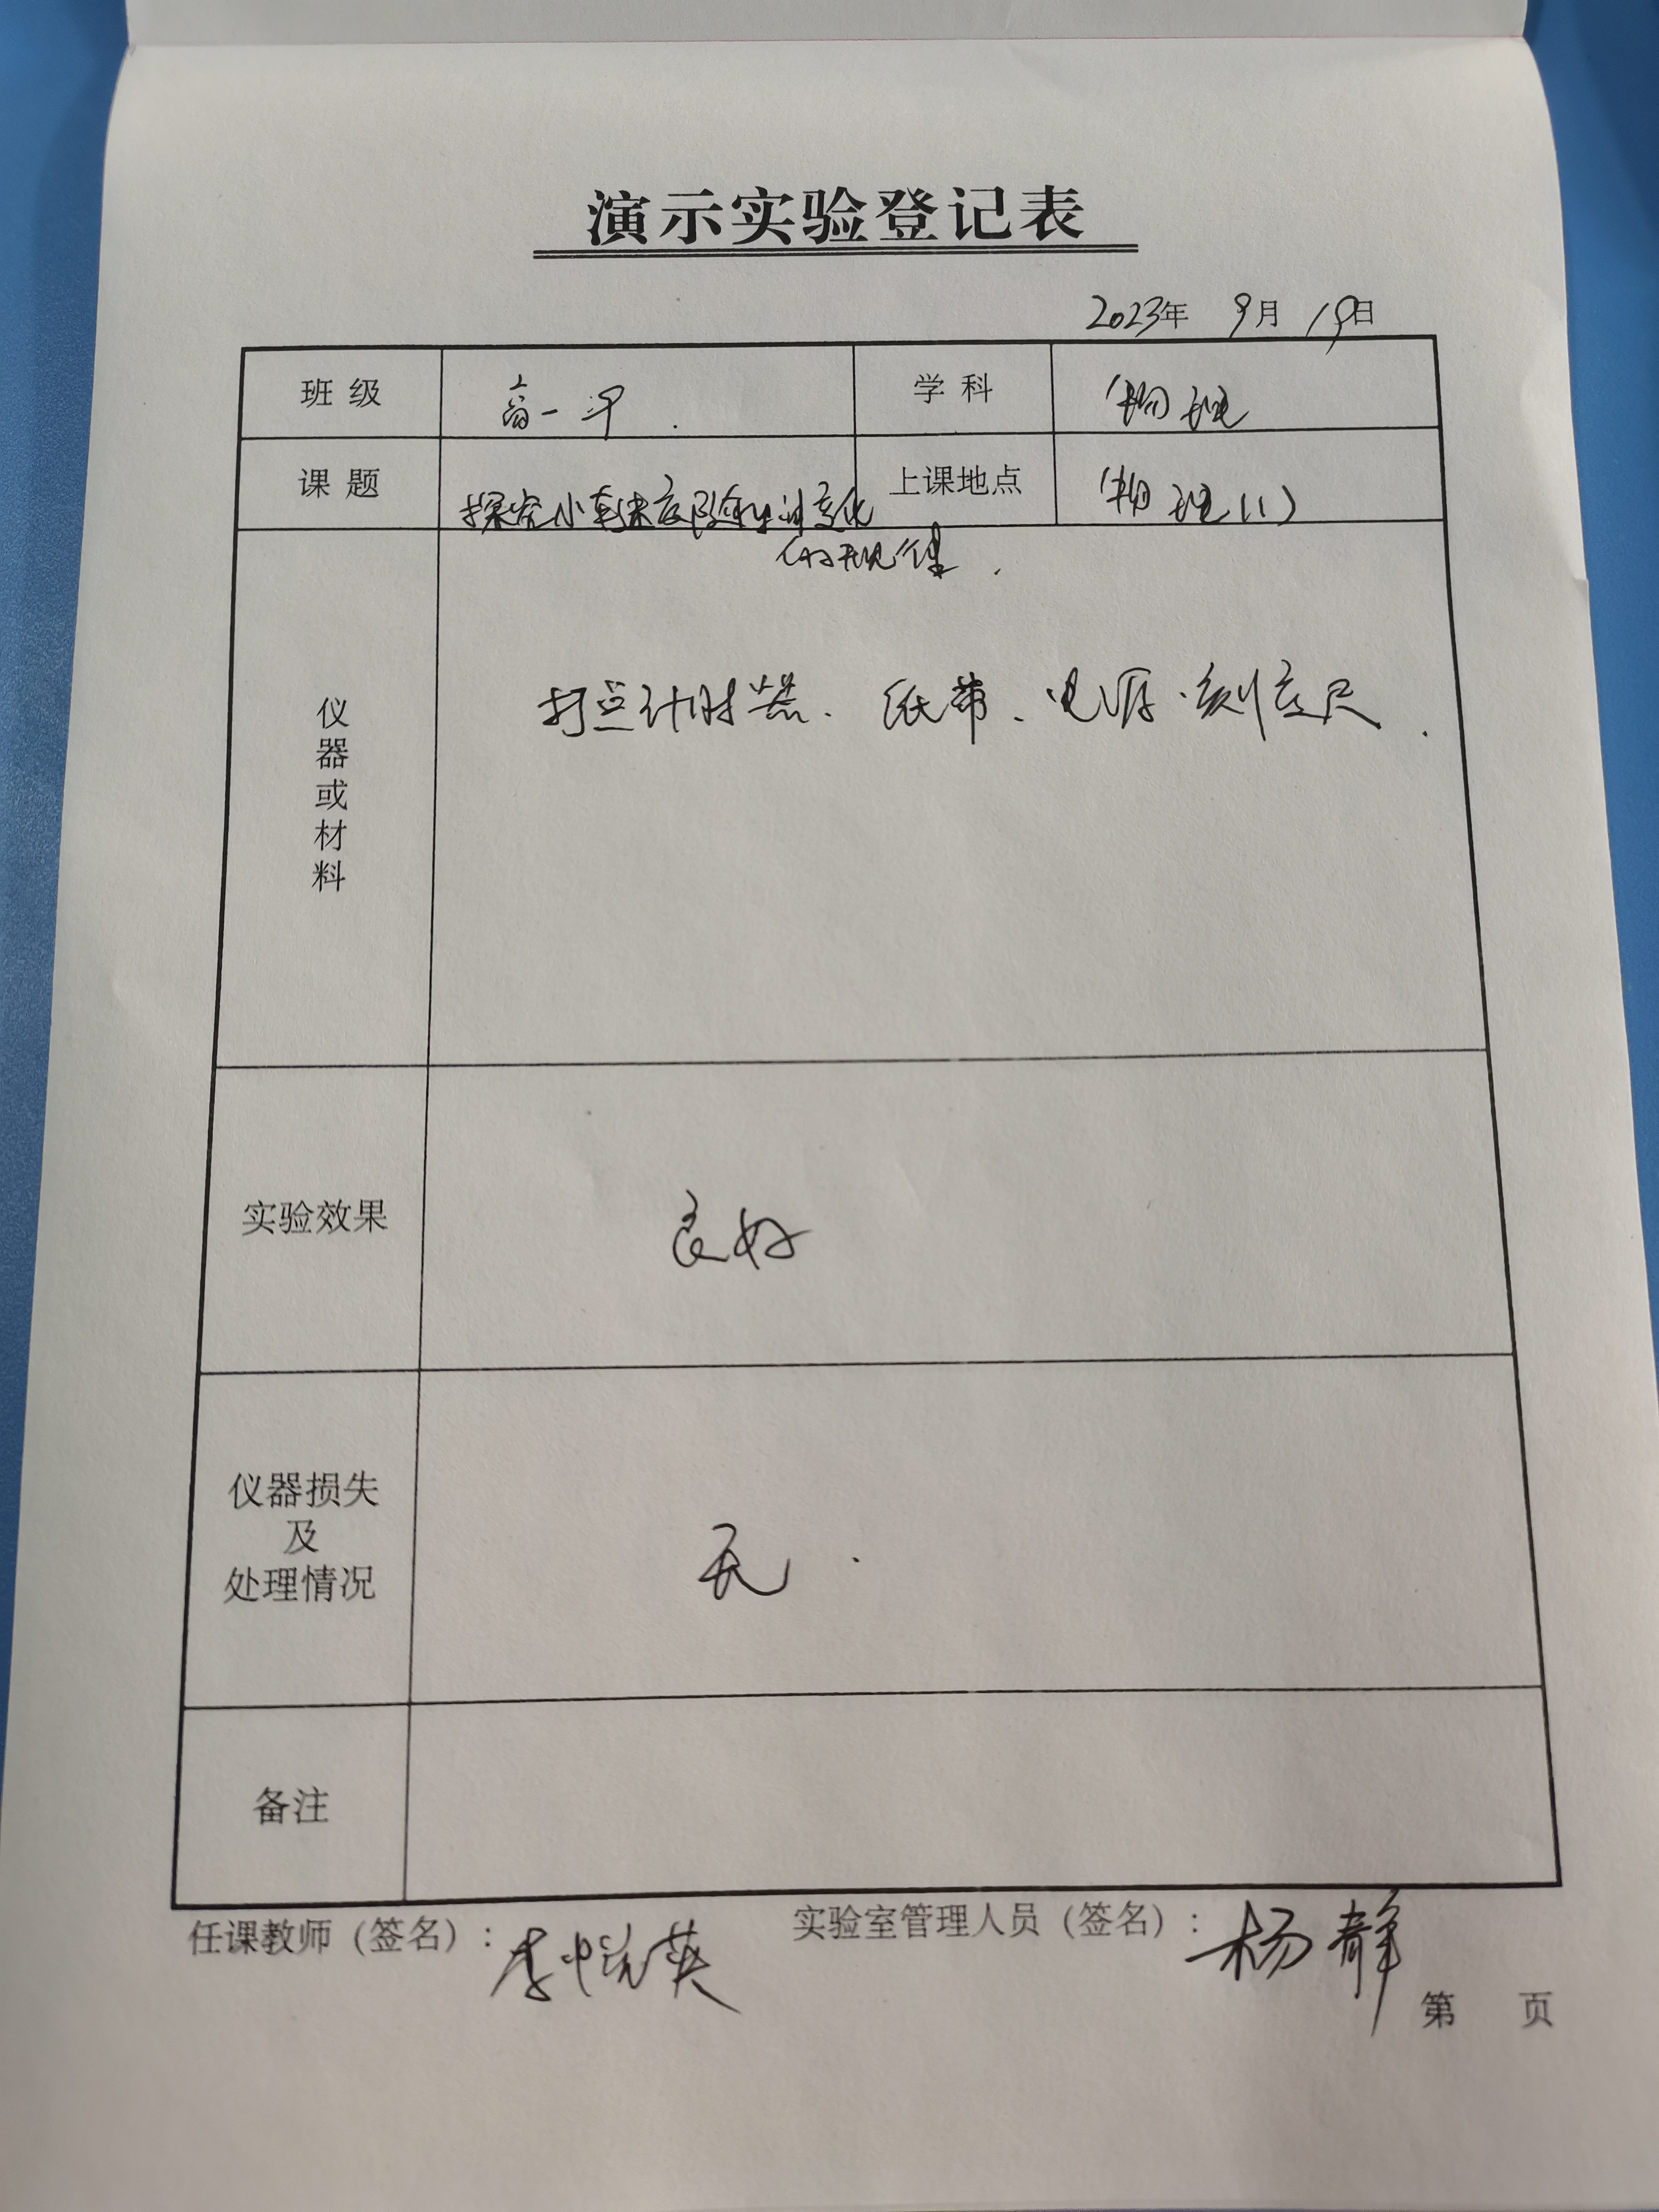 演示实验登记表
2023年 9月 19日
班级 高一 学科 物理
课题 探究小车速度随时间变化的规律. 上课地点 物理(1)
仪器或材料 打点计时器、纸带、电源、刻度尺.
实验效果 良好
仪器损失及处理情况 无.
备注
任课教师（签名）：李悦英 实验室管理人员（签名）：杨静
第 页